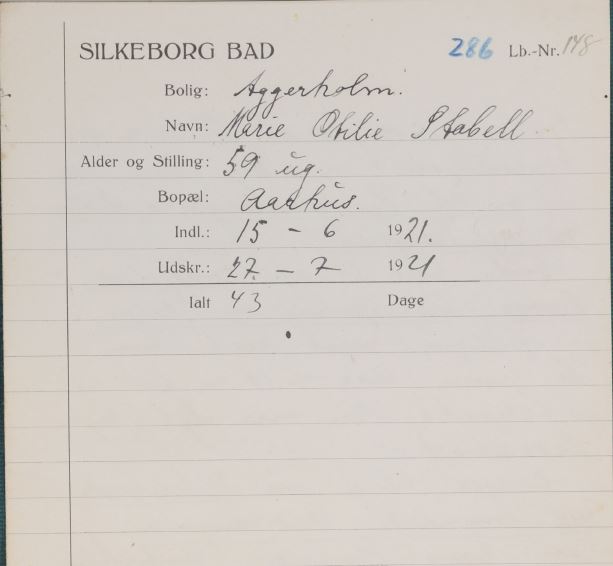 SILKEBORG BAD 286 Lb.-Nr. 148
Bolig: Aggerholm.
Navn: Marie Otilie Stabell
Alder og Stilling: 59 ug.
Bopæl: Aarhus.
Indl.: 15 - 6 1921.
Udskr.: 27. - 7 1921
Ialt 43 Dage